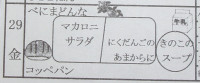 べにまどんな
29
金
マカロニ
サラダ
にくだんごの
あまからに
きのこの
スープ
コッペパン